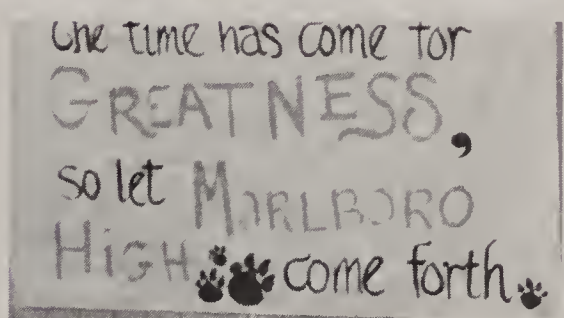 the time has come for
GREATNESS,
so let MARLBORO
HIGH come forth